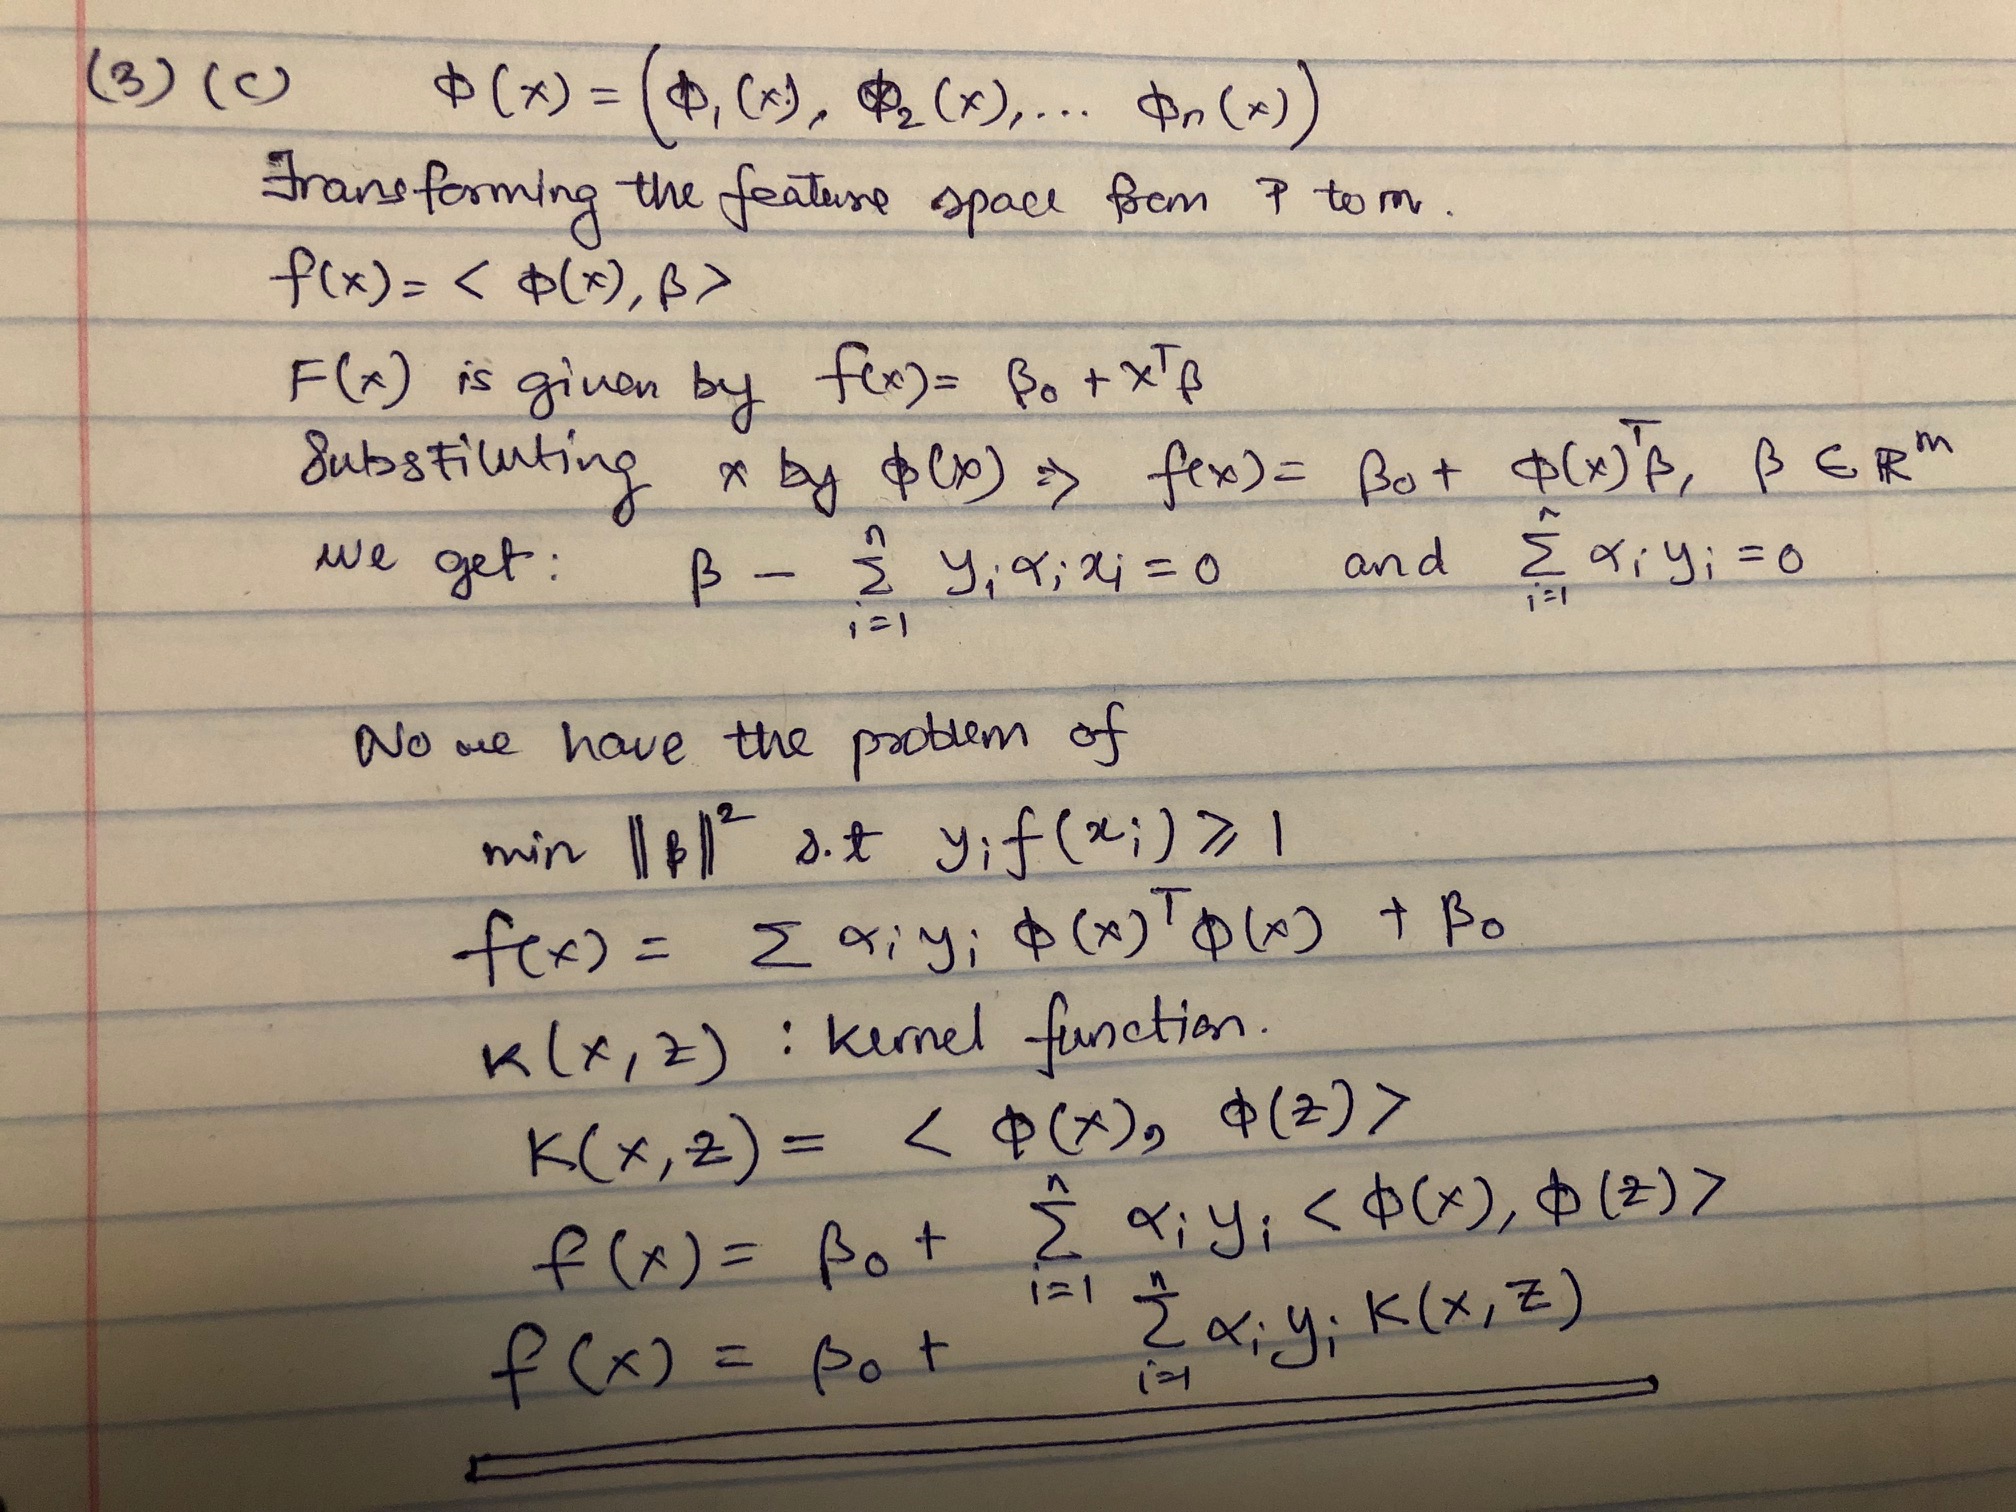 (3) (c) ϕ(x) = (ϕ₁(x), ϕ₂(x), ... ϕn(x))
Transforming the feature space from P to m.
f(x) = < ϕ(x), β >
F(x) is given by f(x) = β₀ + xᵀβ
Substituting x by ϕ(x) ⇒ f(x) = β₀ + ϕ(x)ᵀβ, β ∈ ℝᵐ
we get: β − Σ_{i=1}^{n} yᵢ αᵢ xᵢ = 0 and Σ_{i=1}^{n} αᵢ yᵢ = 0
No we have the problem of
min ||β||² s.t yᵢ f(xᵢ) ⩾ 1
f(x) = Σ αᵢ yᵢ ϕ(x)ᵀ ϕ(x) + β₀
K(x, z) : kernel function.
K(x, z) = < ϕ(x), ϕ(z) >
f(x) = β₀ + Σ_{i=1}^{n} αᵢ yᵢ < ϕ(x), ϕ(z) >
f(x) = β₀ + Σ_{i=1}^{n} αᵢ yᵢ K(x, z)